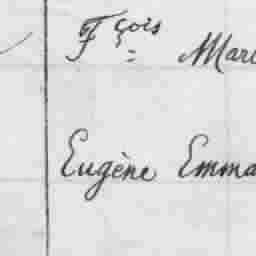 Fçois Mari
Eugène Emma